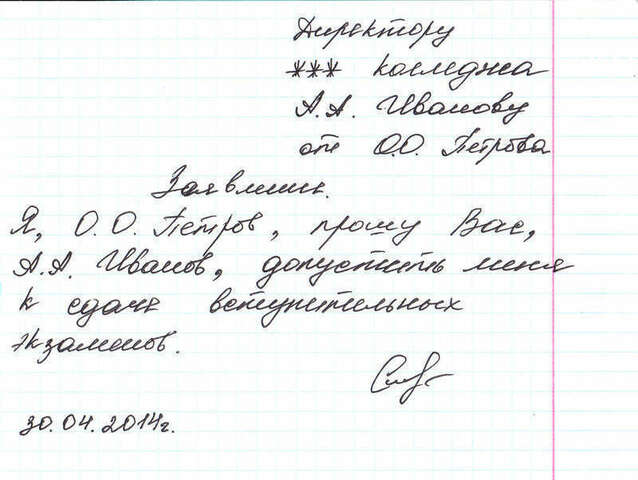 Директору
*** колледжа
А.А. Иванову
от О.О. Петрова
Заявление.
Я, О.О. Петров, прошу Вас,
А.А. Иванов, допустить меня
к сдаче вступительных
экзаменов.
30.04.2014г.